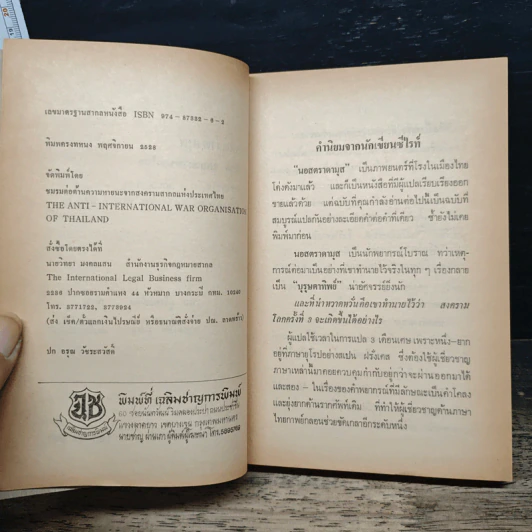 เลขมาตรฐานสากลหนังสือ ISBN 974-87322-8-2
พิมพ์ครั้งที่หนึ่ง พฤศจิกายน ๒๕๒๙
จัดพิมพ์โดย
ชมรมต่อต้านความหายนะจากสงครามสากลแห่งประเทศไทย
THE ANTI-INTERNATIONAL WAR ORGANISATION
OF THAILAND
สั่งซื้อโดยตรงได้ที่
นายวิทยา มงคลแสน สำนักงานธุรกิจกฎหมายสากล
The International Legal Business firm
ปากซอยรามคำแหง ๔๔ หัวหมาก บางกะปิ กทม.
โทร.
(ส่ง เช็ค/ตั๋วแลกเงินไปรษณีย์ หรือธนาณัติสั่งจ่าย ปณ. ลาดพร้าว)
ปก อรุณ วัชระสวัสดิ์
พิมพ์ที่ เฉลิมชาญการพิมพ์
คำนิยมจากนักเขียนซีไรท์
"นอสตราดามุส" เป็นภาพยนตร์ที่โรงในเมืองไทย
โด่งดังมาแล้ว และก็เป็นหนังสือที่มีผู้แปลเรียบเรียงออก
ขายแล้วด้วย แต่ฉบับที่คุณกำลังอ่านต่อไปนี้เป็นฉบับที่
สมบูรณ์แปลกันอย่างละเอียดคำต่อคำทีเดียว ซ้ำยังไม่เคย
พิมพ์มาก่อน
นอสตราดามุส เป็นนักพยากรณ์โบราณ ทว่าเหตุ-
การณ์ต่อมาเป็นอย่างที่เขาทำนายไว้จริงในทุก ๆ เรื่องกลาย
เป็น บุรุษตาทิพย์ นายอัศจรรย์ยิ่งนัก
และที่น่าหวาดหวั่นคือเขาทำนายไว้ว่า สงคราม
โลกครั้งที่ 3 จะเกิดขึ้นได้อย่างไร
ผู้แปลใช้เวลาในการแปล 3 เดือนเศษ เพราะหนึ่ง-ยาก
อยู่ที่ภาษายุโรปอย่างสเปน ฝรั่งเศส ซึ่งต้องใช้ผู้เชี่ยวชาญ
ภาษาเหล่านี้มาคอยควบคุมกำกับอยู่กว่าจะผ่านออกมาได้
และสอง - ในเรื่องของคำพยากรณ์ที่มีลักษณะเป็นคำโคลง
และยุ่งยากด้านรากศัพท์เดิม ที่ทำให้ผู้เชี่ยวชาญด้านภาษา
ไทยกาพย์กลอนช่วยขัดเกลาอีกระดับหนึ่ง